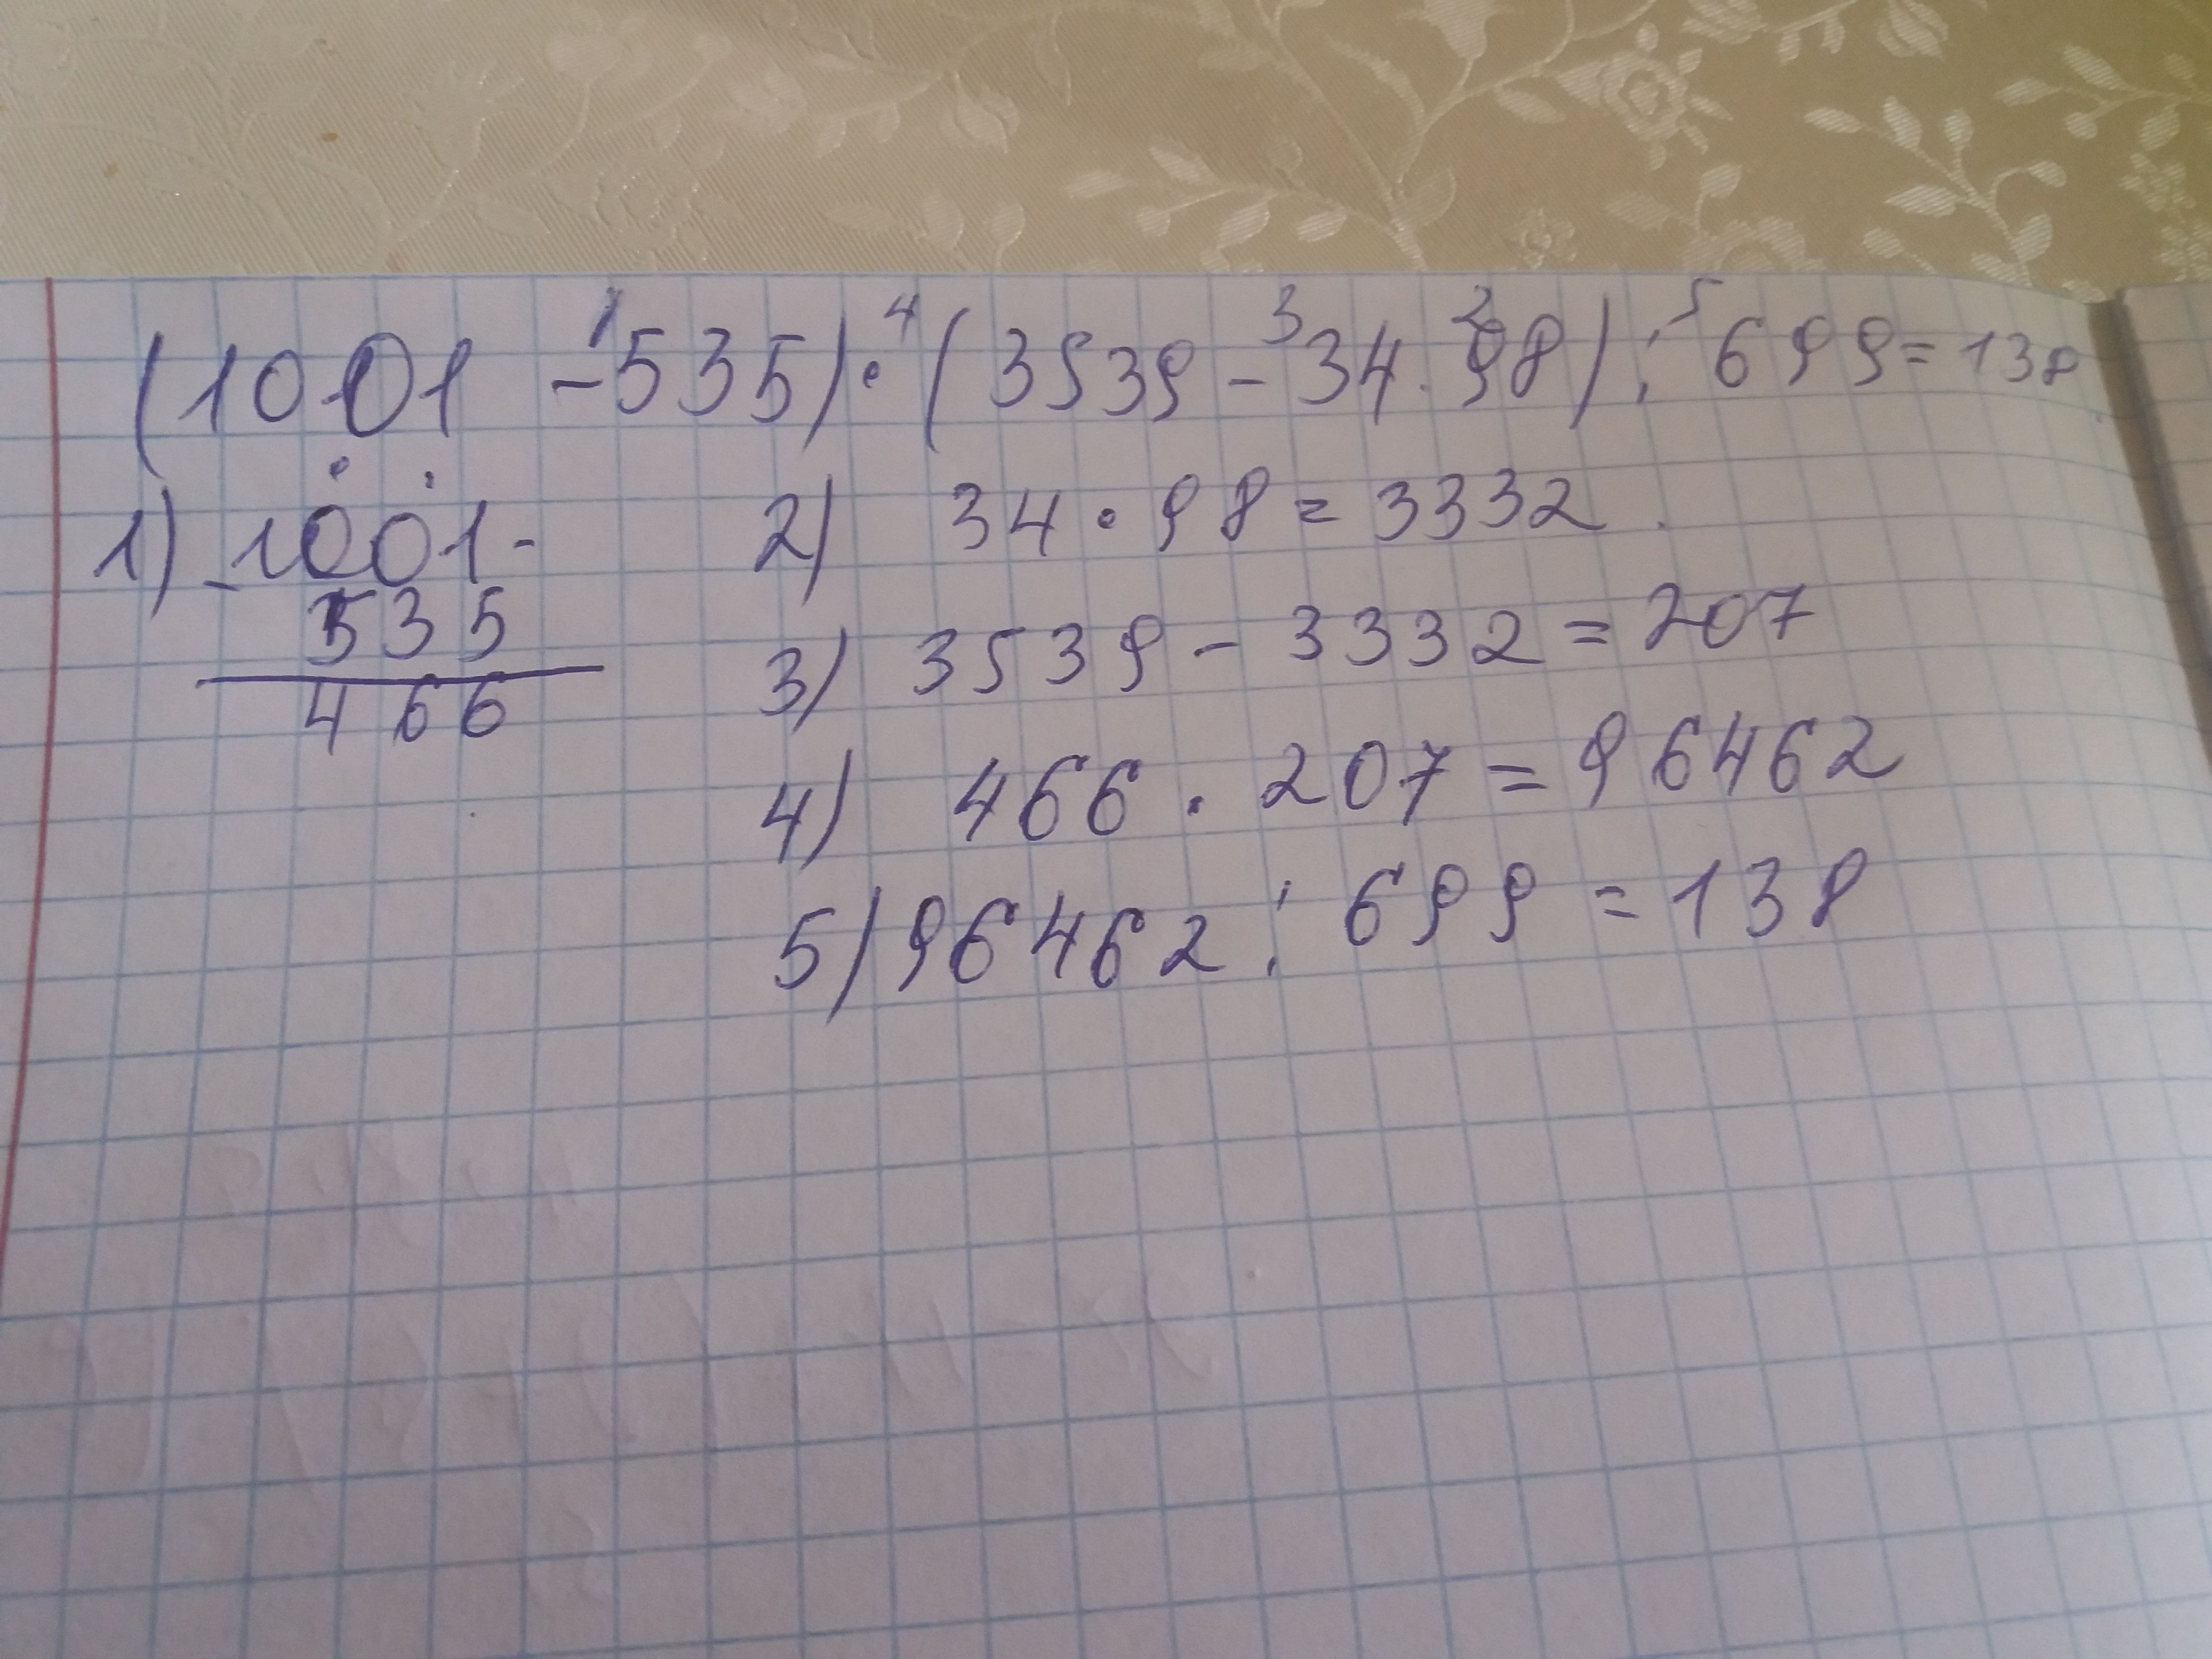 (1001 - 535) · (3539 - 34 · 98) : 699 = 138
1 4 3 2 5
1) 1001 -
535
466
2) 34 · 98 = 3332
3) 3539 - 3332 = 207
4) 466 · 207 = 96462
5) 96462 : 699 = 138